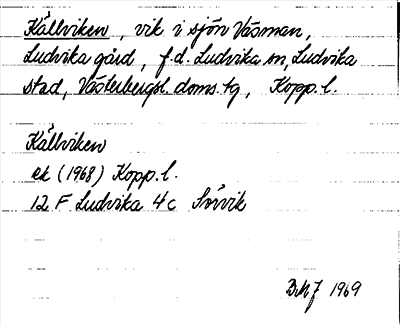 Källviken, vik i sjön Väsman,
Ludvika gård, f.d. Ludvika sn, Ludvika
stad, Västerbergsl. doms. tg, Kopp. l.
Källviken
ek (1968) Kopp. l.
12 F Ludvika 4c Sörvik
1969